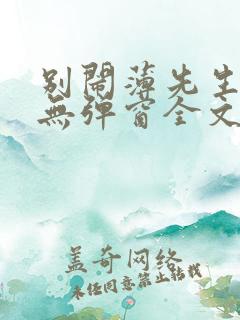 别闹薄先生
无弹窗全文
盖奇网络
未经同意禁止转载